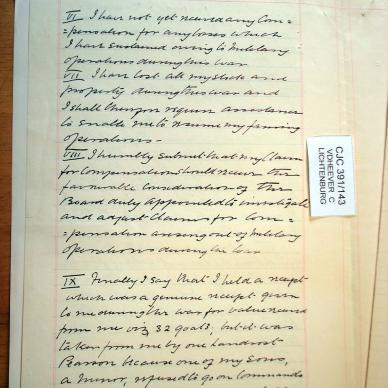 VI I have not yet received any Com=
=pensation for any losses which
I have sustained owing to Military
operations during this war
VII I have lost all my stock and
property during this war and
I shall therefore require assistance
to enable me to resume my farming
operations -
VIII I humbly submit that my Claim
for Compensation should receive the
favourable consideration of the
Board duly appointed to investigate
and adjust Claims for Com=
=pensation arising out of Military
operations during the war
IX Finally I say that I held a receipt
which was a genuine receipt given
to me during the war for value received
from me viz 32 goats, but it was
taken from me by one handrost
Bason because one of my Sons,
a minor, refused to go on Commando
CJC 391/143
VDHEEVER C
LICHTENBURG